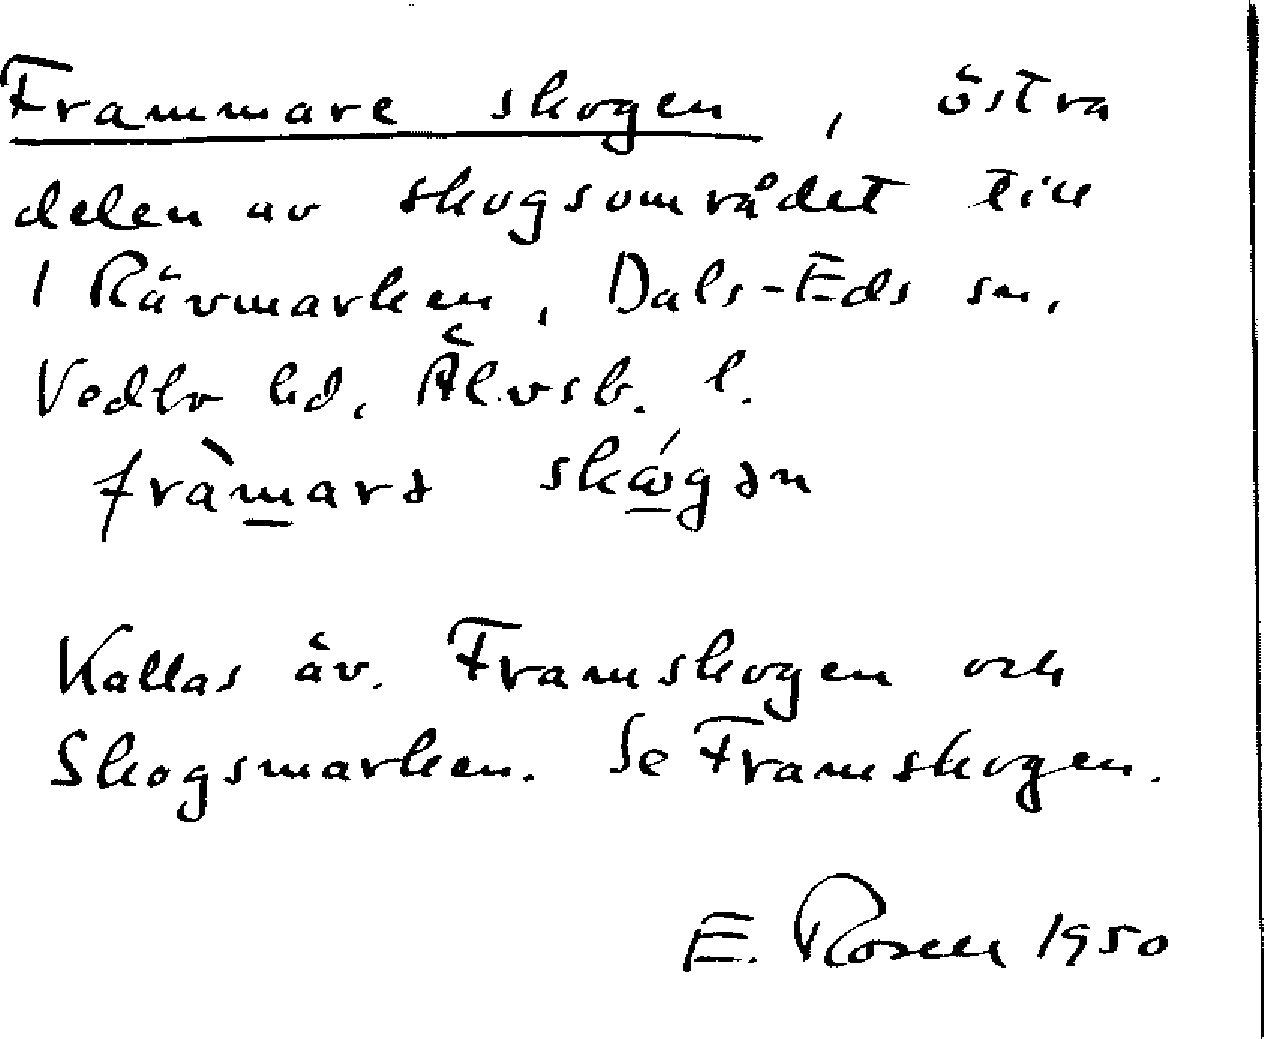 Frammare skogen, östra
delen av skogsområdet till
1 Rävmarken, Dals-Eds sn,
Vedbo hd, Älvsb. l.
fràm̲arə skǽ̲gən
Kallas äv. Framskogen och
Skogsmarken. Se Framskogen.
E. Rosell 1950